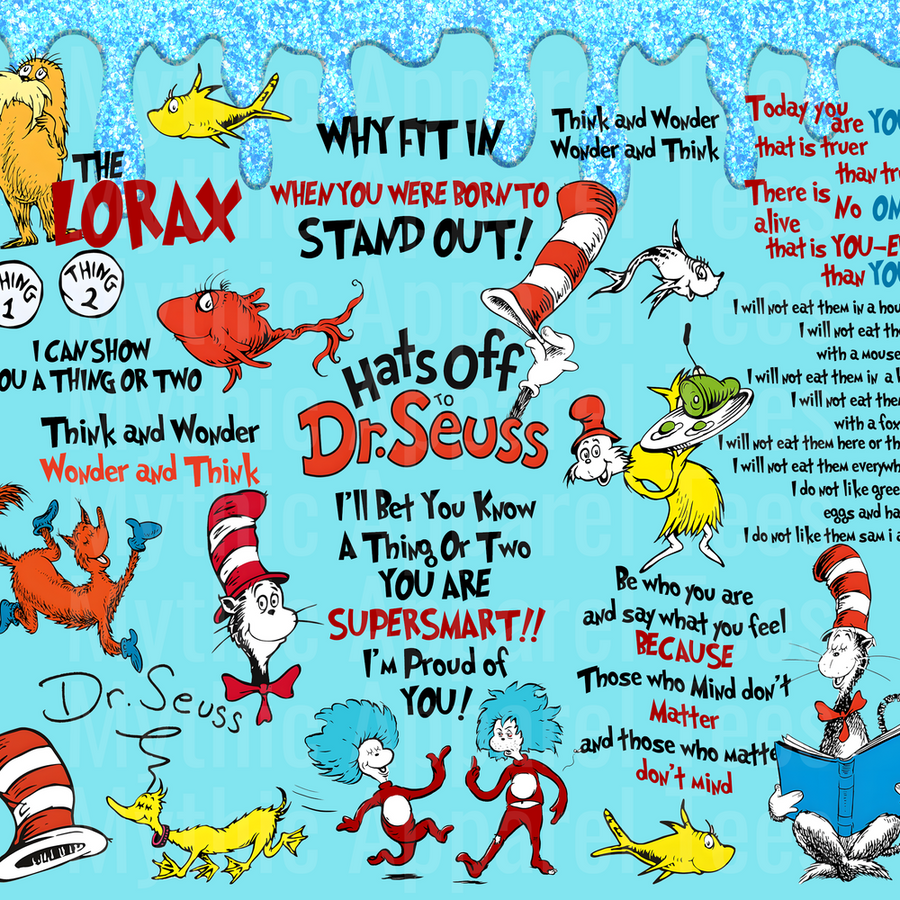 THE
LORAX
THING
1
THING
2
I CAN SHOW
YOU A THING OR TWO
Think and Wonder
Wonder and Think
Dr. Seuss
WHY FIT IN
WHEN YOU WERE BORN TO
STAND OUT!
Hats Off
TO
Dr. Seuss
I'll Bet You Know
A Thing Or Two
YOU ARE
SUPERSMART!!
I'm Proud of
YOU!
Think and Wonder
Wonder and Think
Today you
are YOU
that is truer
than tr
There is
No ON
alive
that is YOU-E
than YOU
I will not eat them in a hou
I will not eat the
with a mouse
I will not eat them in a b
I will not eat the
with a fox
I will not eat them here or th
I will not eat them everywh
I do not like gree
eggs and ha
I do not like them sam i a
Be who you are
and say what you feel
BECAUSE
Those who Mind don't
Matter
and those who matte
don't mind
Mythic Apparel Tees